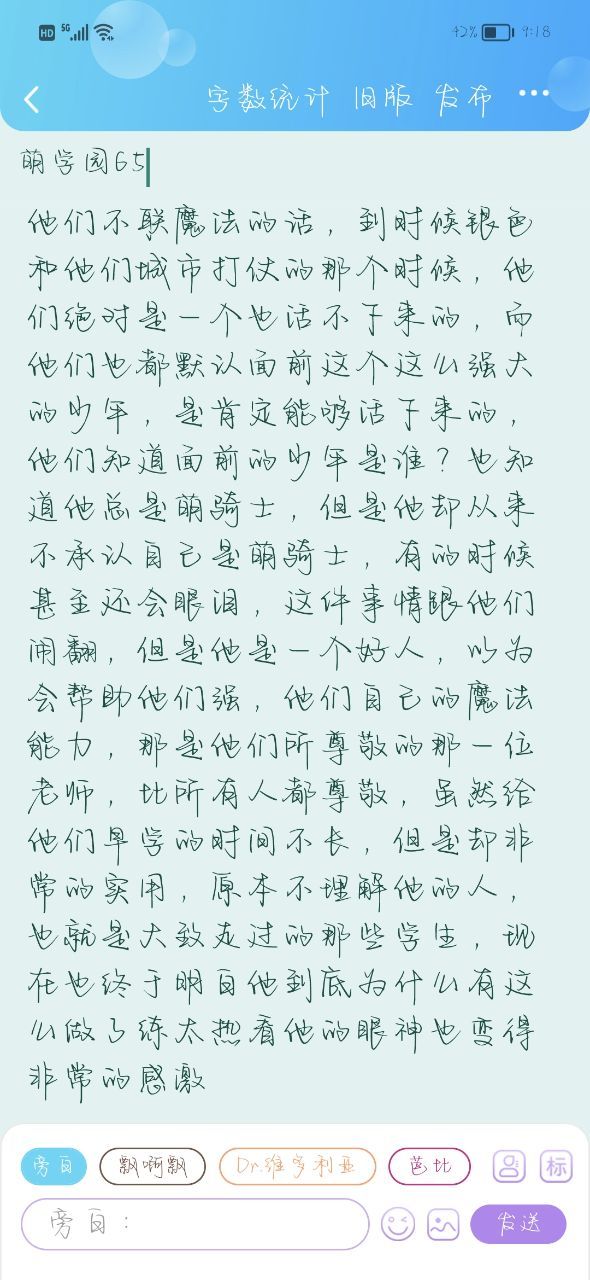 HD 5G 42% 9:18
字数统计 旧版 发布
萌学园65
他们不联魔法的话，到时候银色
和他们城市打仗的那个时候，他
们绝对是一个也活不下来的，而
他们也都默认面前这个这么强大
的少年，是肯定能够活下来的，
他们知道面前的少年是谁？也知
道他总是萌骑士，但是他却从来
不承认自己是萌骑士，有的时候
甚至还会眼泪，这件事情跟他们
闹翻，但是他是一个好人，以为
会帮助他们强，他们自己的魔法
能力，那是他们所尊敬的那一位
老师，比所有人都尊敬，虽然给
他们早学的时间不长，但是却非
常的实用，原本不理解他的人，
也就是大致走过的那些学生，现
在也终于明白他到底为什么有这
么做了练太热看他的眼神也变得
非常的感激
旁白 飘啊飘 Dr.维多利亚 芭比 标
旁白： 发送